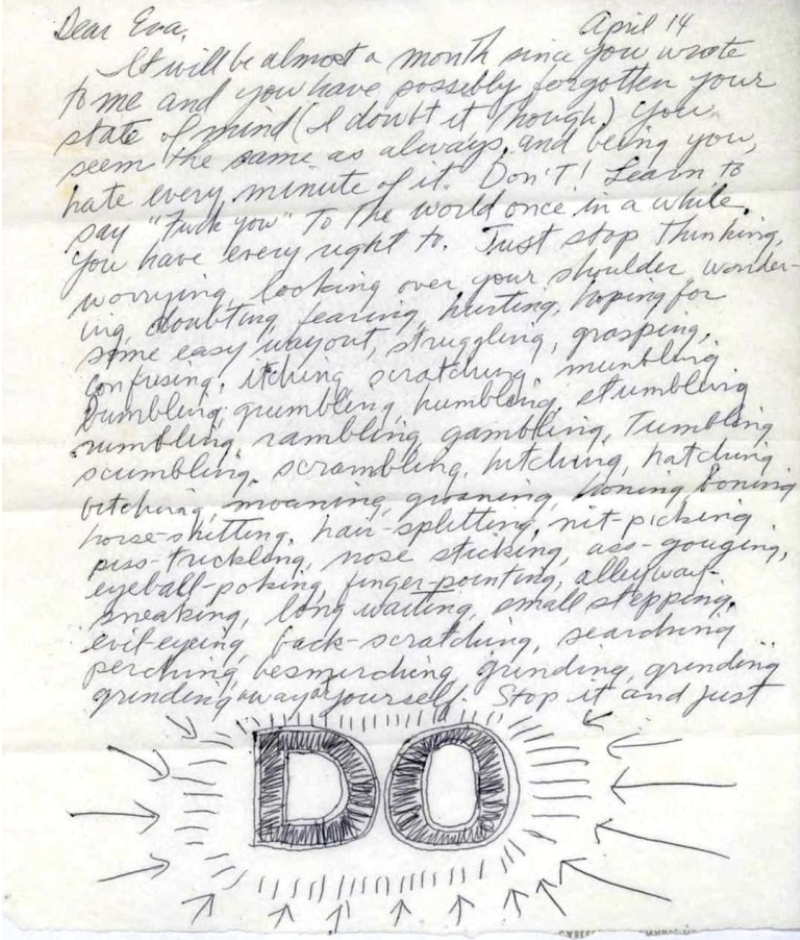 Dear Eva, April 14
It will be almost a month since you wrote
to me and you have possibly forgotten your
state of mind (I doubt it though). You
seem the same as always, and being you,
hate every minute of it. Don't! Learn to
say "Fuck you" to the world once in a while.
You have every right to. Just stop thinking,
worrying, looking over your shoulder, wonder-
ing, doubting, fearing, hurting, hoping for
some easy way out, struggling, grasping,
confusing, itching, scratching, mumbling
bumbling, grumbling, humbling, stumbling
rumbling, rambling, gambling, tumbling
scumbling, scrambling, hitching, hatching
bitching, moaning, groaning, honing, boning
horse-shitting, hair-splitting, nit-picking
piss-trickling, nose sticking, ass-gouging,
eyeball-poking, finger-pointing, alleyway-
sneaking, long waiting, small stepping,
evil-eyeing, back-scratching, searching
perching, besmirching, grinding, grinding
grinding away at yourself. Stop it and just
DO